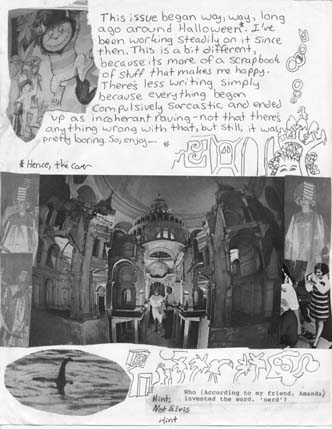 This issue began way, way, long
ago around Halloween*. I've
been working steadily on it since
then. This is a bit different,
because its more of a scrapbook
of stuff that makes me happy.
There's less writing simply
because everything began
Compulsively Sarcastic and ended
up as incoherant raving - not that there's
anything wrong with that, but still, it was
pretty boring. So, enjoy —
* Hence, the cover
Who (According to my friend, Amanda)
invented the word, 'nerd'?
Hint;
Not Elvis
Hint